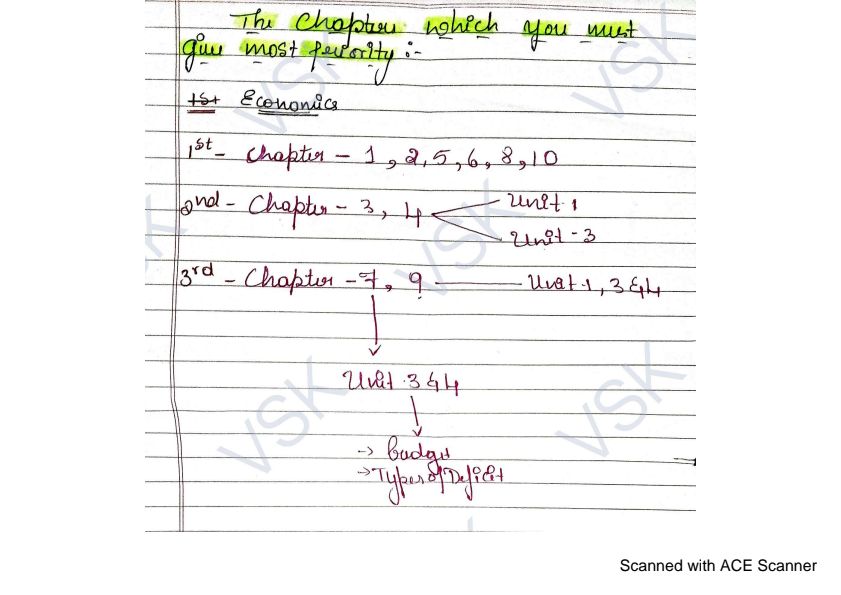 The Chapters which you must
give most periority :-
1st Economics
1st - Chapter - 1, 2, 5, 6, 8, 10
2nd - Chapter - 3, 4 Unit 1
Unit - 3
3rd - Chapter - 7, 9 Unit 1, 3 & 4
Unit 3 & 4
-> Budget
-> Types of Deficit
VSK
VSK
VSK
VSK
VSK
VSK
Scanned with ACE Scanner